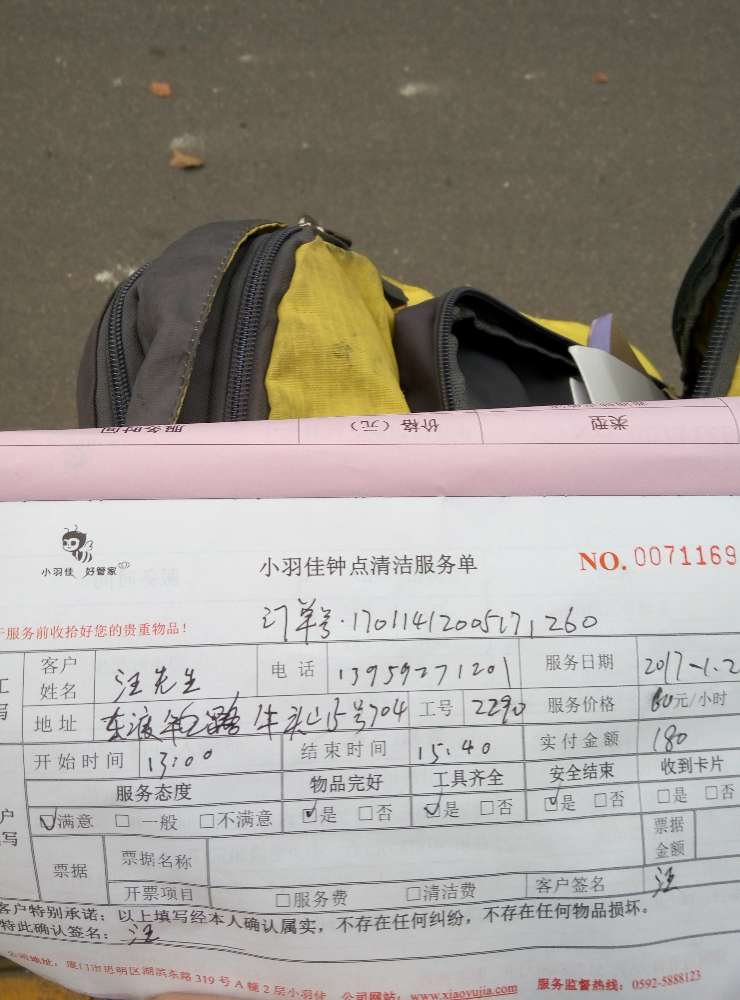 类型 价格（元） 服务时间
小羽佳 好管家
小羽佳钟点清洁服务单
NO. 0071169
服务前收拾好您的贵重物品！
订单号·1701141200517,1260
客户姓名 汪先生 电话 13959271201 服务日期 2017-1.2
地址 东渡 路牛头山15号704 工号 2290 服务价格 60元/小时
开始时间 13:00 结束时间 15:40 实付金额 180
服务态度 物品完好 工具齐全 安全结束 收到卡片
☑满意 □一般 □不满意 ☑是 □否 ☑是 □否 ☑是 □否 □是 □否
票据 票据名称 票据金额
开票项目 □服务费 □清洁费 客户签名 汪
客户特别承诺：以上填写经本人确认属实，不存在任何纠纷，不存在任何物品损坏。
特此确认签名： 汪
公司地址：厦门市思明区湖滨东路319号A幢2层小羽佳 公司网站：www.xiaoyujia.com 服务监督热线：0592-5888123